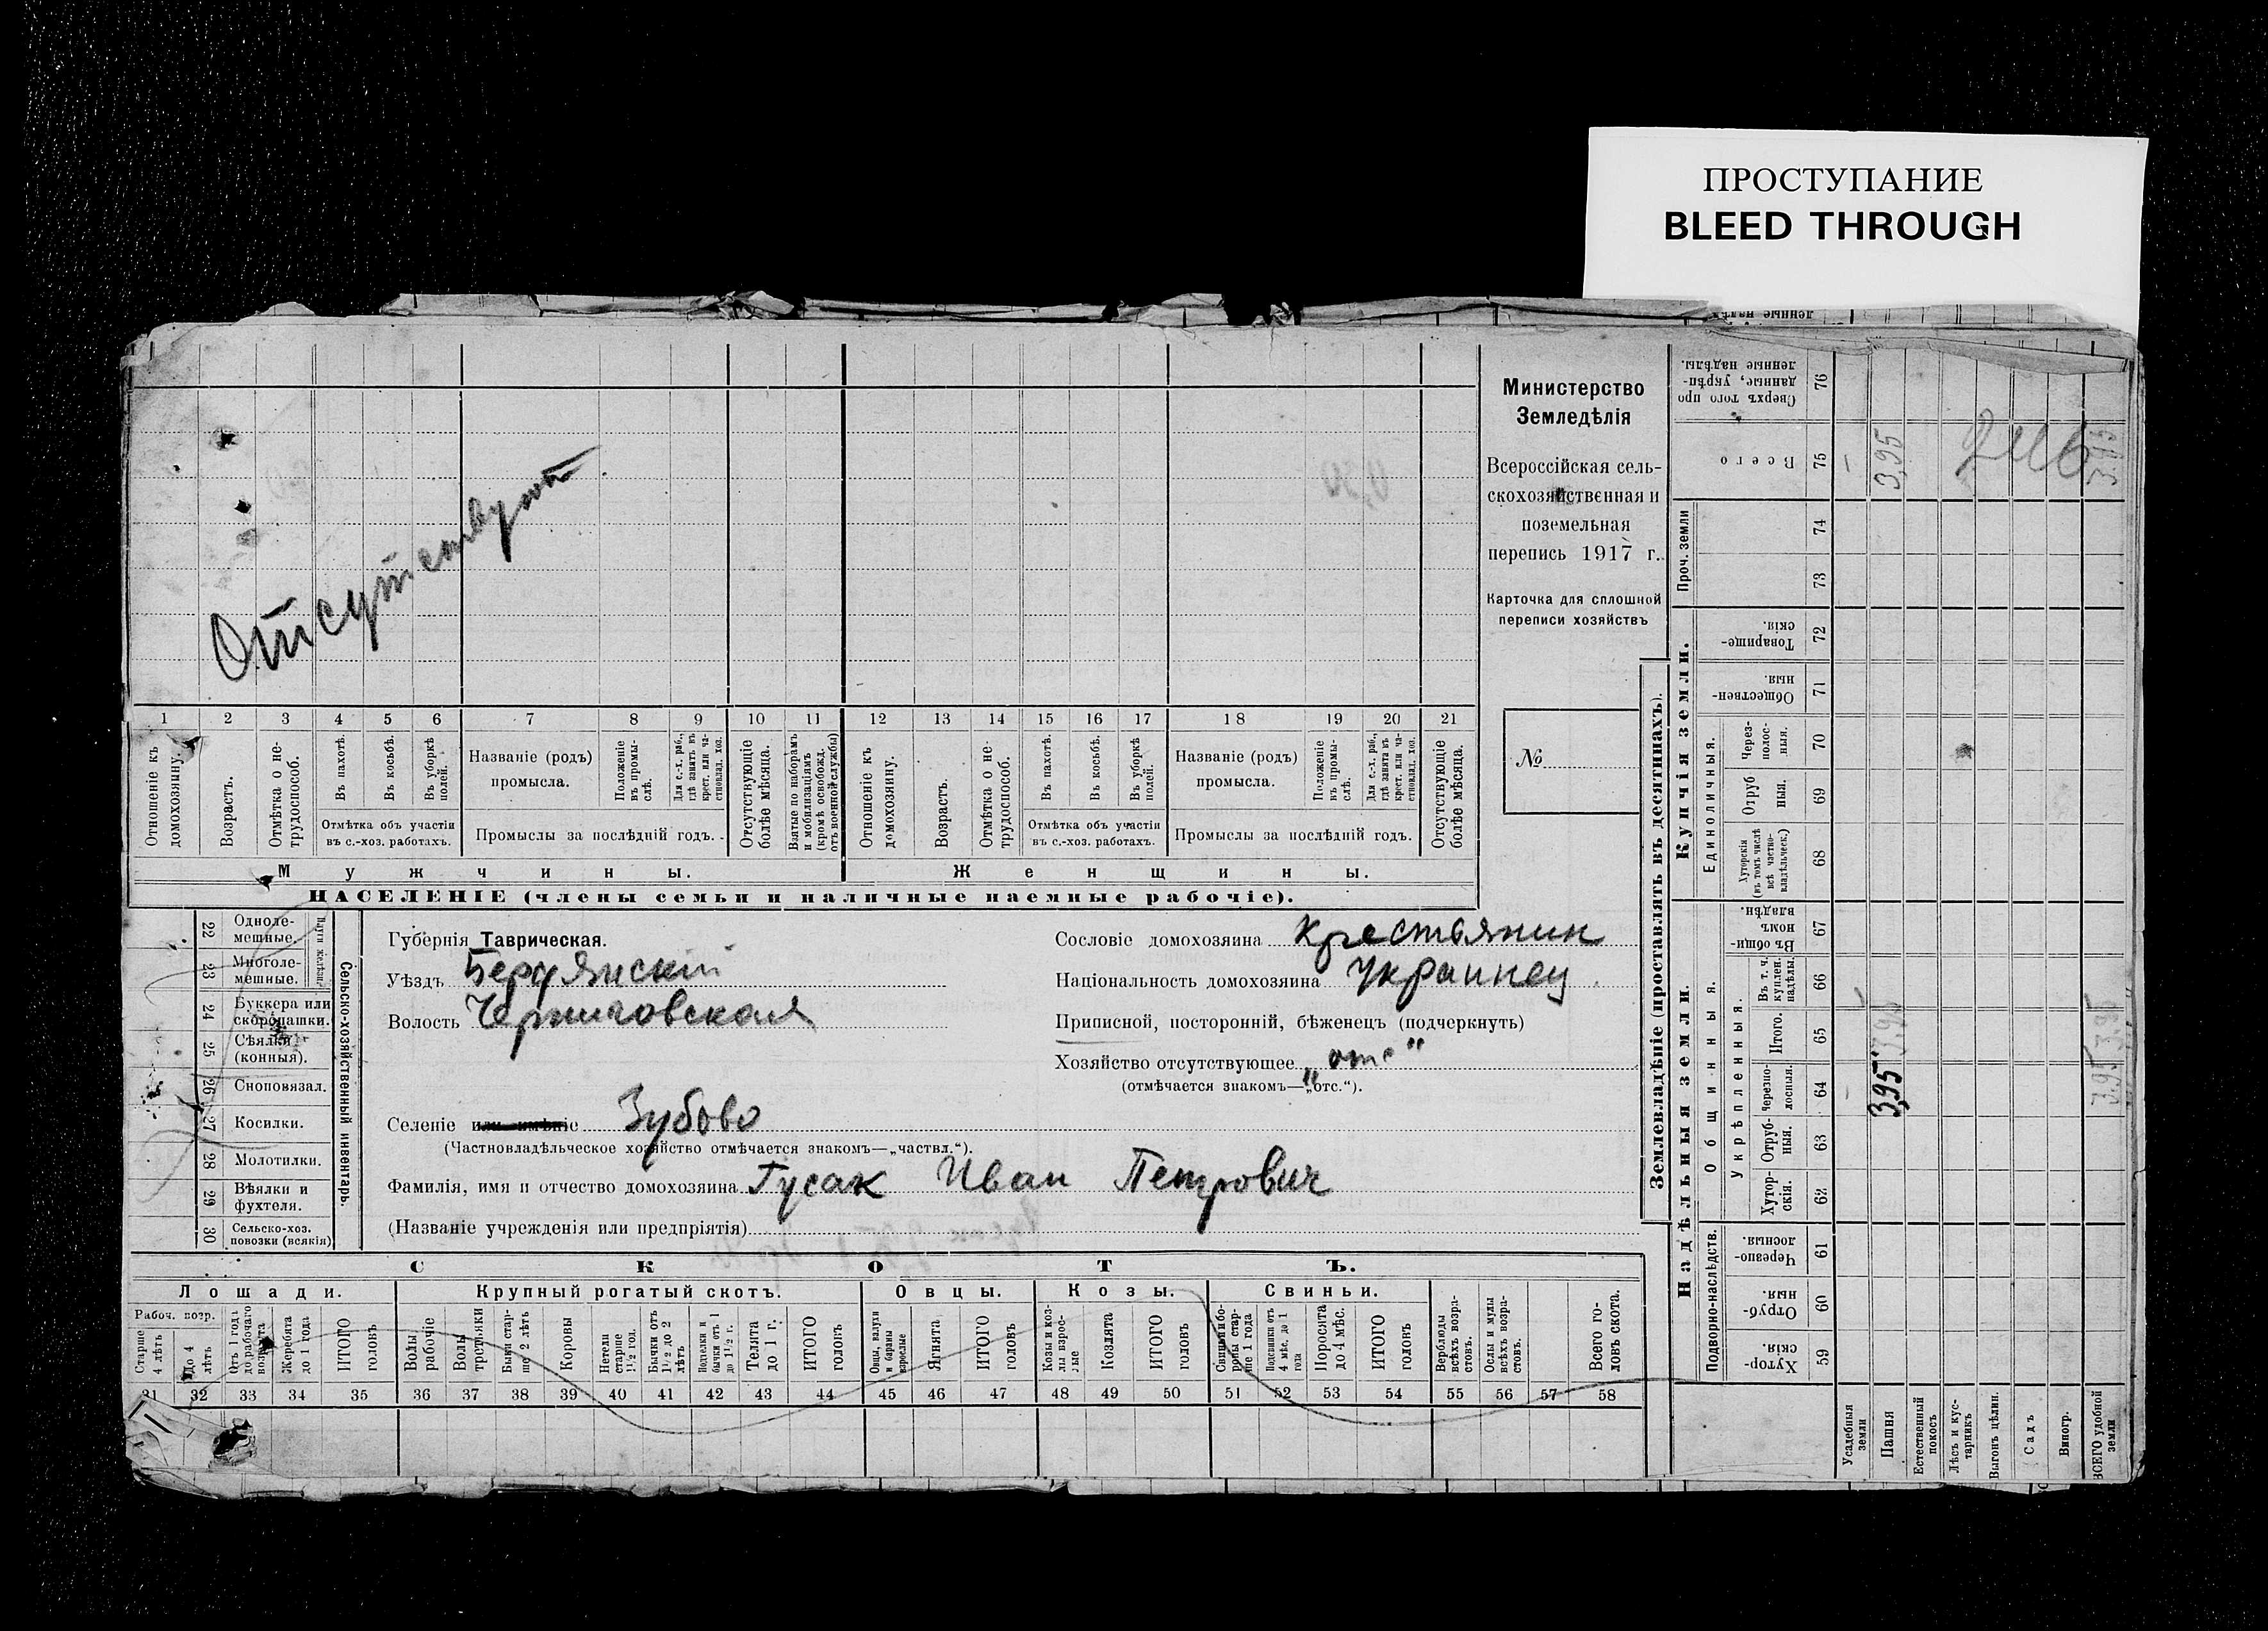 ПРОСТУПАНИЕ
BLEED THROUGH
Отсутствует
Министерство
Земледѣлія
Всероссійская сель-
скохозяйственная и
поземельная
перепись 1917 г.
Карточка для сплошной
переписи хозяйствъ
№
1 2 3 4 5 6 7 8 9 10 11 12 13 14 15 16 17 18 19 20 21
Отношеніе къ домохозяину.
Возрастъ.
Отмѣтка о не-трудоспособ.
Въ пахотѣ.
Въ косьбѣ.
Въ уборкѣ полей.
Отмѣтка объ участіи
въ с.-хоз. работахъ.
Названіе (родъ)
промысла.
Положеніе въ промы-слѣ.
Для с.-х. раб., гдѣ занятъ въ крест. или ча-стновлад. хоз.
Промыслы за послѣдній годъ.
Отсутствующіе болѣе мѣсяца.
Взятые по наборамъ и мобилизаціямъ (кромѣ освобожд. отъ военной службы)
Отношеніе къ домохозяину.
Возрастъ.
Отмѣтка о не-трудоспособ.
Въ пахотѣ.
Въ косьбѣ.
Въ уборкѣ полей.
Отмѣтка объ участіи
въ с.-хоз. работахъ.
Названіе (родъ)
промысла.
Положеніе въ промы-слѣ.
Для с.-х. раб., гдѣ занята въ крест. или ча-стновлад. хоз.
Промыслы за послѣдній годъ.
Отсутствующіе болѣе мѣсяца.
Мужчины.
Женщины.
НАСЕЛЕНІЕ (члены семьи и наличные наемные рабочіе).
Сельско-хозяйственный инвентарь.
22 Одноле-мешные.
23 Многоле-мешные.
24 Буккера или скоропашки.
25 Сѣялки (конныя).
26 Сноповязал.
27 Косилки.
28 Молотилки.
29 Вѣялки и фухтеля.
30 Сельско-хоз. повозки (всякія)
Губернія Таврическая.
Уѣздъ Бердянскій
Волость Черниговская
Селеніе или имѣніе Зубово
(Частновладѣльческое хозяйство отмѣчается знакомъ—„частвл.“).
Фамилія, имя и отчество домохозяина Гусак Иван Петрович
(Названіе учрежденія или предпріятія)
Сословіе домохозяина крестьянин
Національность домохозяина украинец
Приписной, посторонній, бѣженецъ (подчеркнуть)
Хозяйство отсутствующее „отс“
(отмѣчается знакомъ—„отс.“).
СКОТЪ.
Лошади.
Крупный рогатый скотъ.
Овцы.
Козы.
Свиньи.
Рабоч. возр.
Старше 4 лѣтъ
До 4 лѣтъ
Отъ 1 года до рабочаго возраста
Жеребята до 1 года
ИТОГО головъ
Волы рабочіе
Волы третьяки
Быки стар-ше 2 лѣтъ
Коровы
Нетели старше 1½ год.
Бычки отъ 1½ до 2 лѣтъ
Телята до 1 г.
ИТОГО головъ
Овцы, валухи и бараны взрослые
Ягнята
ИТОГО головъ
Козы и коз-лы взрос-лые
Козлята
ИТОГО головъ
Свиньи и бо-ровы стар-ше 1 года
Подсвинки отъ 4 мѣс. до 1 года
Поросята до 4 мѣс.
ИТОГО головъ
Верблюды всѣхъ возра-стовъ.
Ослы и мулы всѣхъ возра-стовъ.
Всего го-ловъ скота.
31 32 33 34 35 36 37 38 39 40 41 42 43 44 45 46 47 48 49 50 51 52 53 54 55 56 57 58
Землевладѣніе (проставлять въ десятинахъ).
Купчія земли.
Надѣльныя земли.
Проч. земли
Единоличныя.
Общинныя.
Укрѣпленныя.
Подворно-наслѣдств.
76 Сверхъ того про-данные, укрѣп-ленные надѣлы.
75 Всего
74
73
72 Товарище-скія.
71 Обществен-ныя.
70 Через-полос-ныя.
69 Отруб-ныя.
68 Хуторскія (въ томъ числѣ всѣ частно-владѣльческ.)
67 Въ общин-номъ владѣн.
66 Въ т. ч. куплен. надѣлы.
65 Итого.
64 Черезпо-лосныя.
63 Отруб-ныя.
62 Хутор-скія.
61 Черезпо-лосныя.
60 Отруб-ныя.
59 Хутор-скія.
3,95
3,95
3,95
3,95
3,95
3,95
Усадебныя земли
Пашня
Естественный покосъ
Лѣсъ и кус-тарникъ
Выгонъ цѣлин.
Садъ
Виногр.
ВСЕГО удобной земли